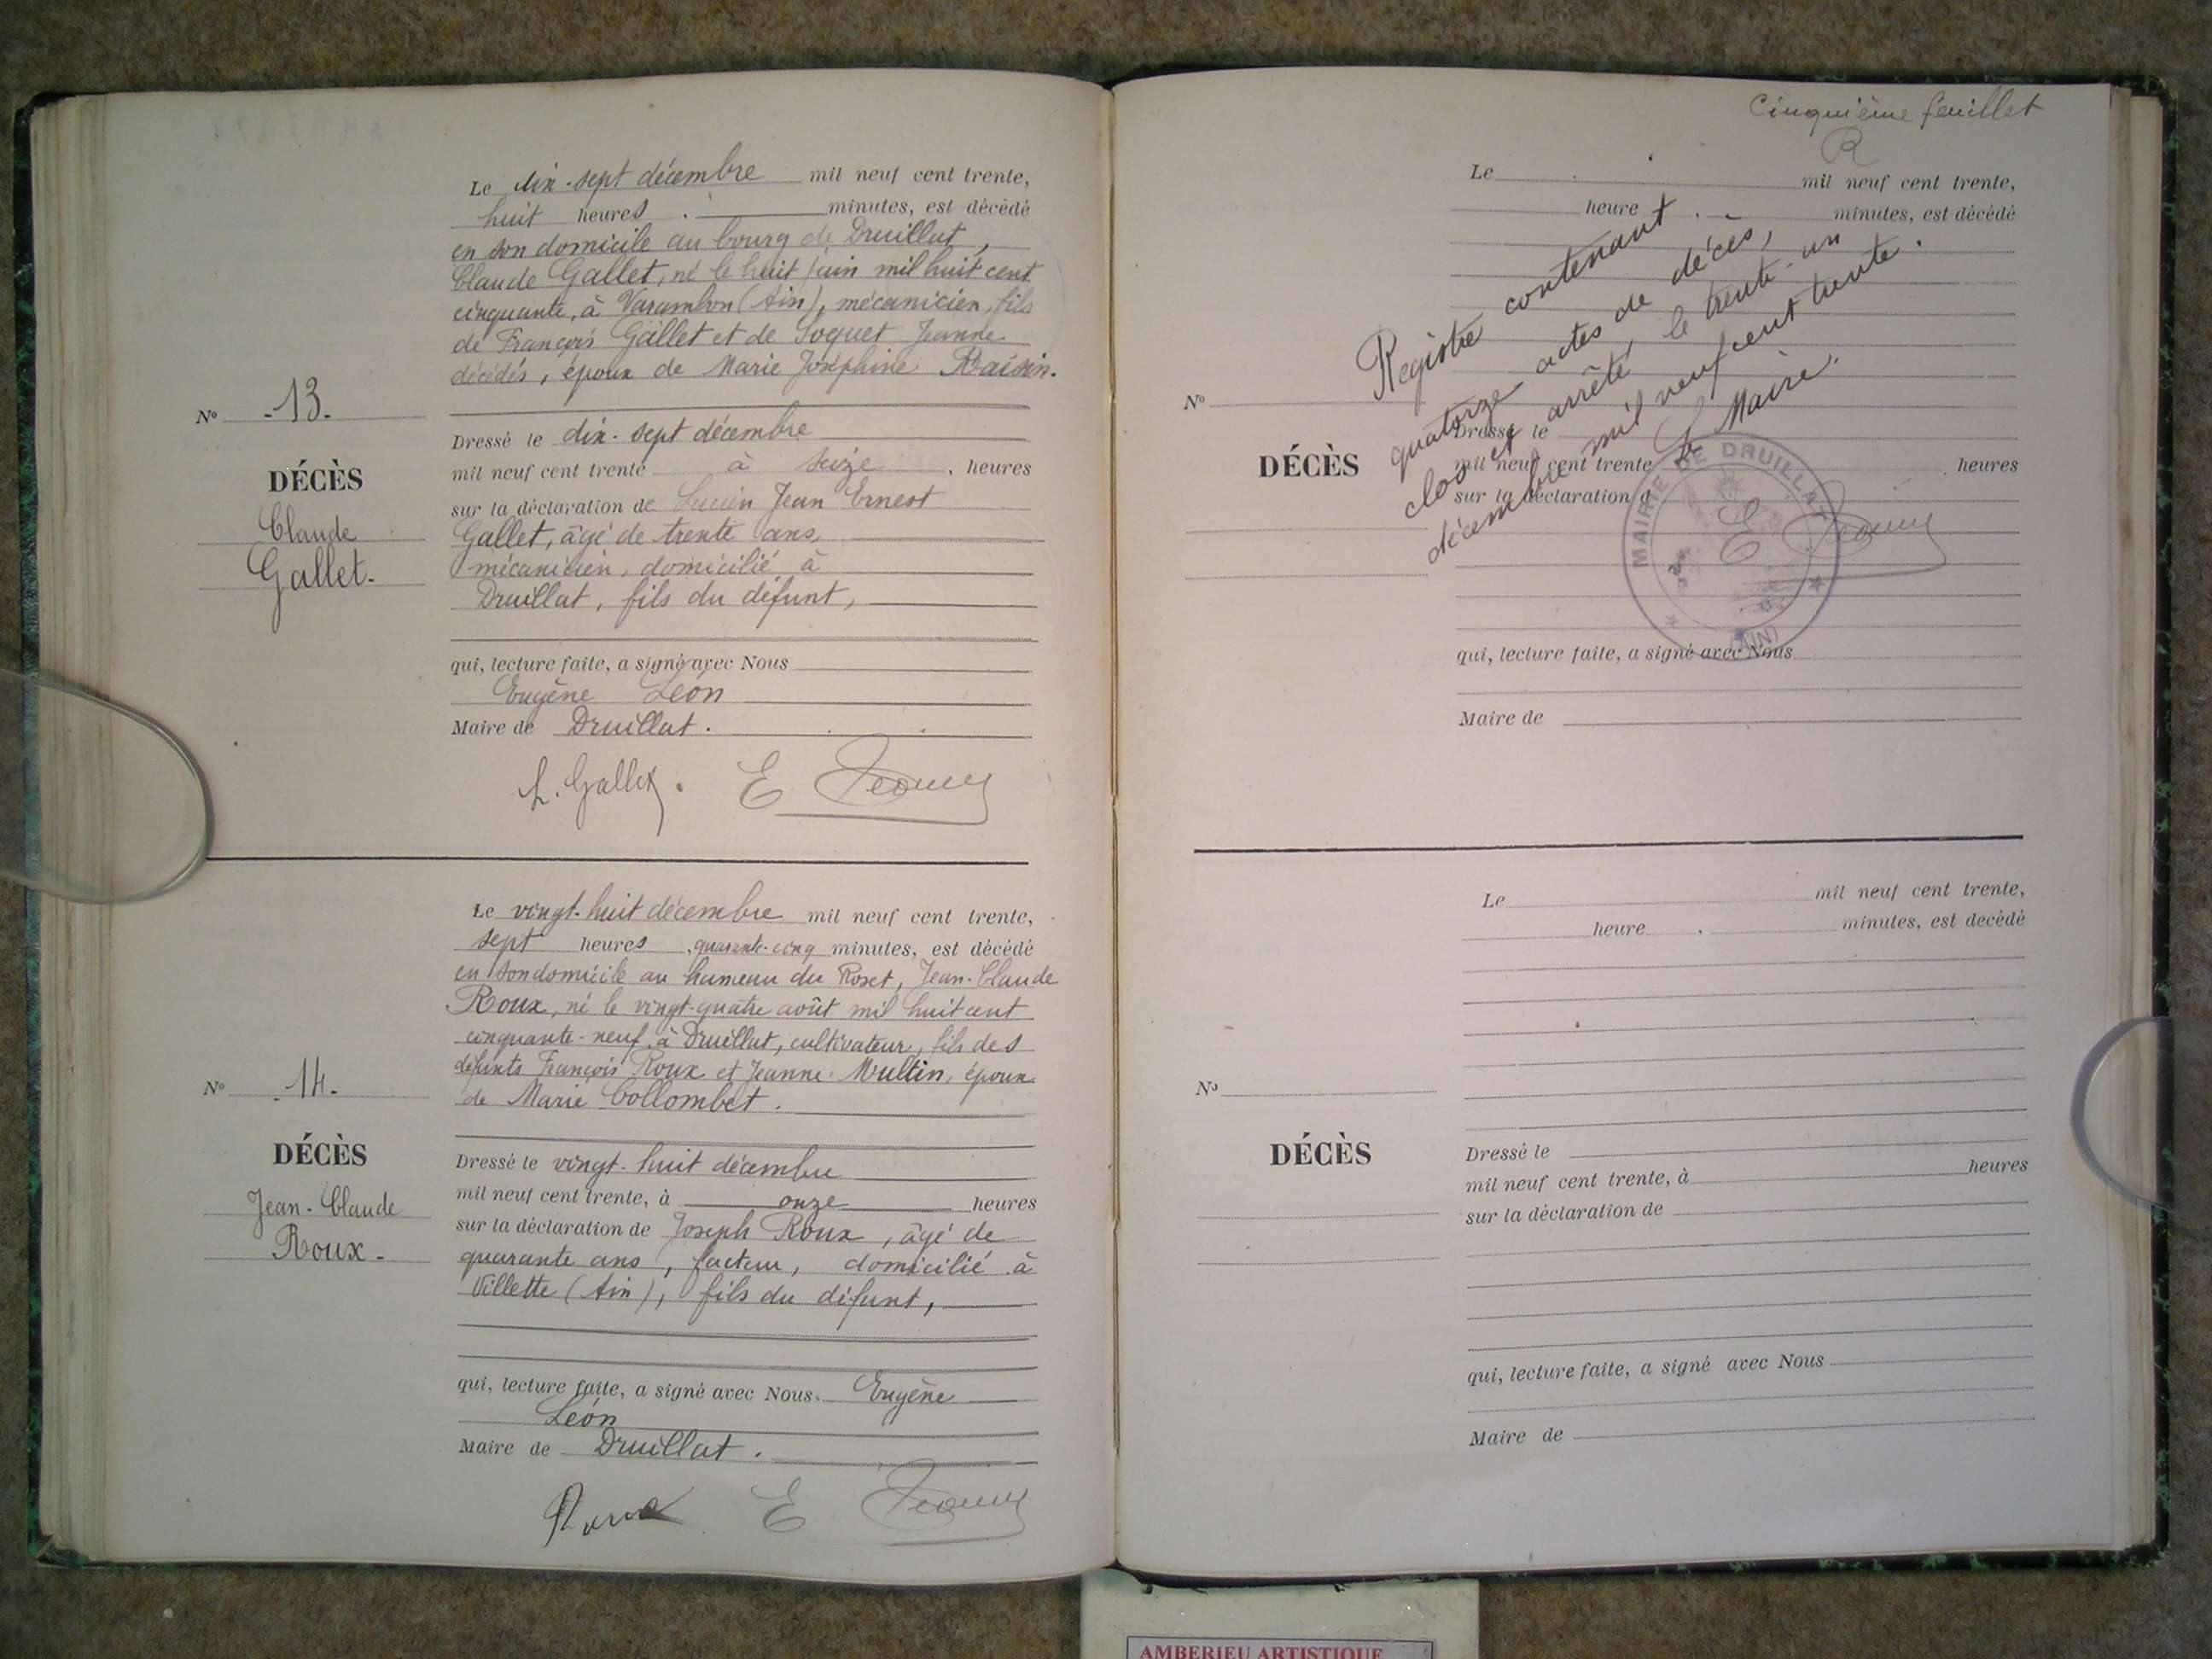 Le dix-sept décembre mil neuf cent trente,
huit heures . minutes, est décédé
en son domicile au bourg de Druillat,
Claude Gallet, né le huit juin mil huit cent
cinquante, à Varambon (Ain), mécanicien, fils
de François Gallet et de Joguet Jeanne
décédés, époux de Marie Joséphine Raisin.
N° -13-
DÉCÈS
Claude
Gallet-
Dressé le dix-sept décembre
mil neuf cent trente à seize , heures
sur la déclaration de Lucien Jean Ernest
Gallet, âgé de trente ans,
mécanicien, domicilié à
Druillat, fils du défunt,
qui, lecture faite, a signé avec Nous
Eugène Léon
Maire de Druillat.
L. Gallet. E
Le vingt-huit décembre mil neuf cent trente,
sept heures , quarante-cinq minutes, est décédé
en son domicile au hameau du Roset, Jean-Claude
Roux, né le vingt-quatre août mil huit cent
cinquante-neuf à Druillat, cultivateur, fils des
défunts François Roux et Jeanne Multin, époux
de Marie Collombet.
N° -14-
DÉCÈS
Jean-Claude
Roux-
Dressé le vingt-huit décembre
mil neuf cent trente, à onze heures
sur la déclaration de Joseph Roux, âgé de
quarante ans, facteur, domicilié à
Villette (Ain), fils du défunt,
qui, lecture faite, a signé avec Nous. Eugène
Léon
Maire de Druillat.
Roux E
Cinquième feuillet
R
Le mil neuf cent trente,
heure . minutes, est décédé
Registre contenant
quatorze actes de décès,
clos et arrêté, le trente-un
décembre mil neuf cent trente.
Le Maire.
E
MAIRIE DE DRUILLAT
(AIN)
N°
DÉCÈS
Dressé le
mil neuf cent trente heures
sur la déclaration d
qui, lecture faite, a signé avec Nous
Maire de
Le mil neuf cent trente,
heure . minutes, est decédé
N°
DÉCÈS
Dressé le
mil neuf cent trente, à heures
sur la déclaration de
qui, lecture faite, a signé avec Nous
Maire de
AMBERIEU ARTISTIQUE